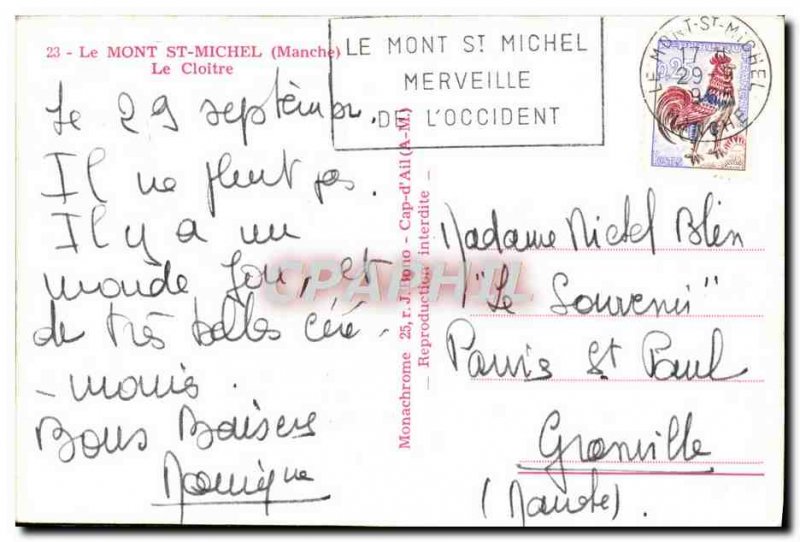 23 - Le MONT ST-MICHEL (Manche)
Le Cloître
LE MONT ST MICHEL
MERVEILLE
DE L'OCCIDENT
LE MONT-ST-MICHEL
17 H
29-9
MANCHE
Le 29 septembre.
Il ne pleut pas.
Il y a un
monde fou, et
de très belles céré-
-monies.
Bons Baisers
Monique
Monachrome 25, r. J. Bono - Cap-d'Ail (A-M.)
— Reproduction interdite —
Madame Michel Blin
"Le Souvenir"
Parvis St Paul
Granville
(Manche).
CPAPHIL